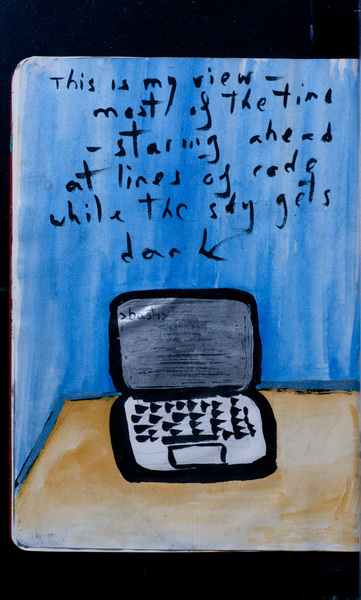 This is my view -
most of the time
- staring ahead
at lines of code
while the sky gets
dark
>bash>